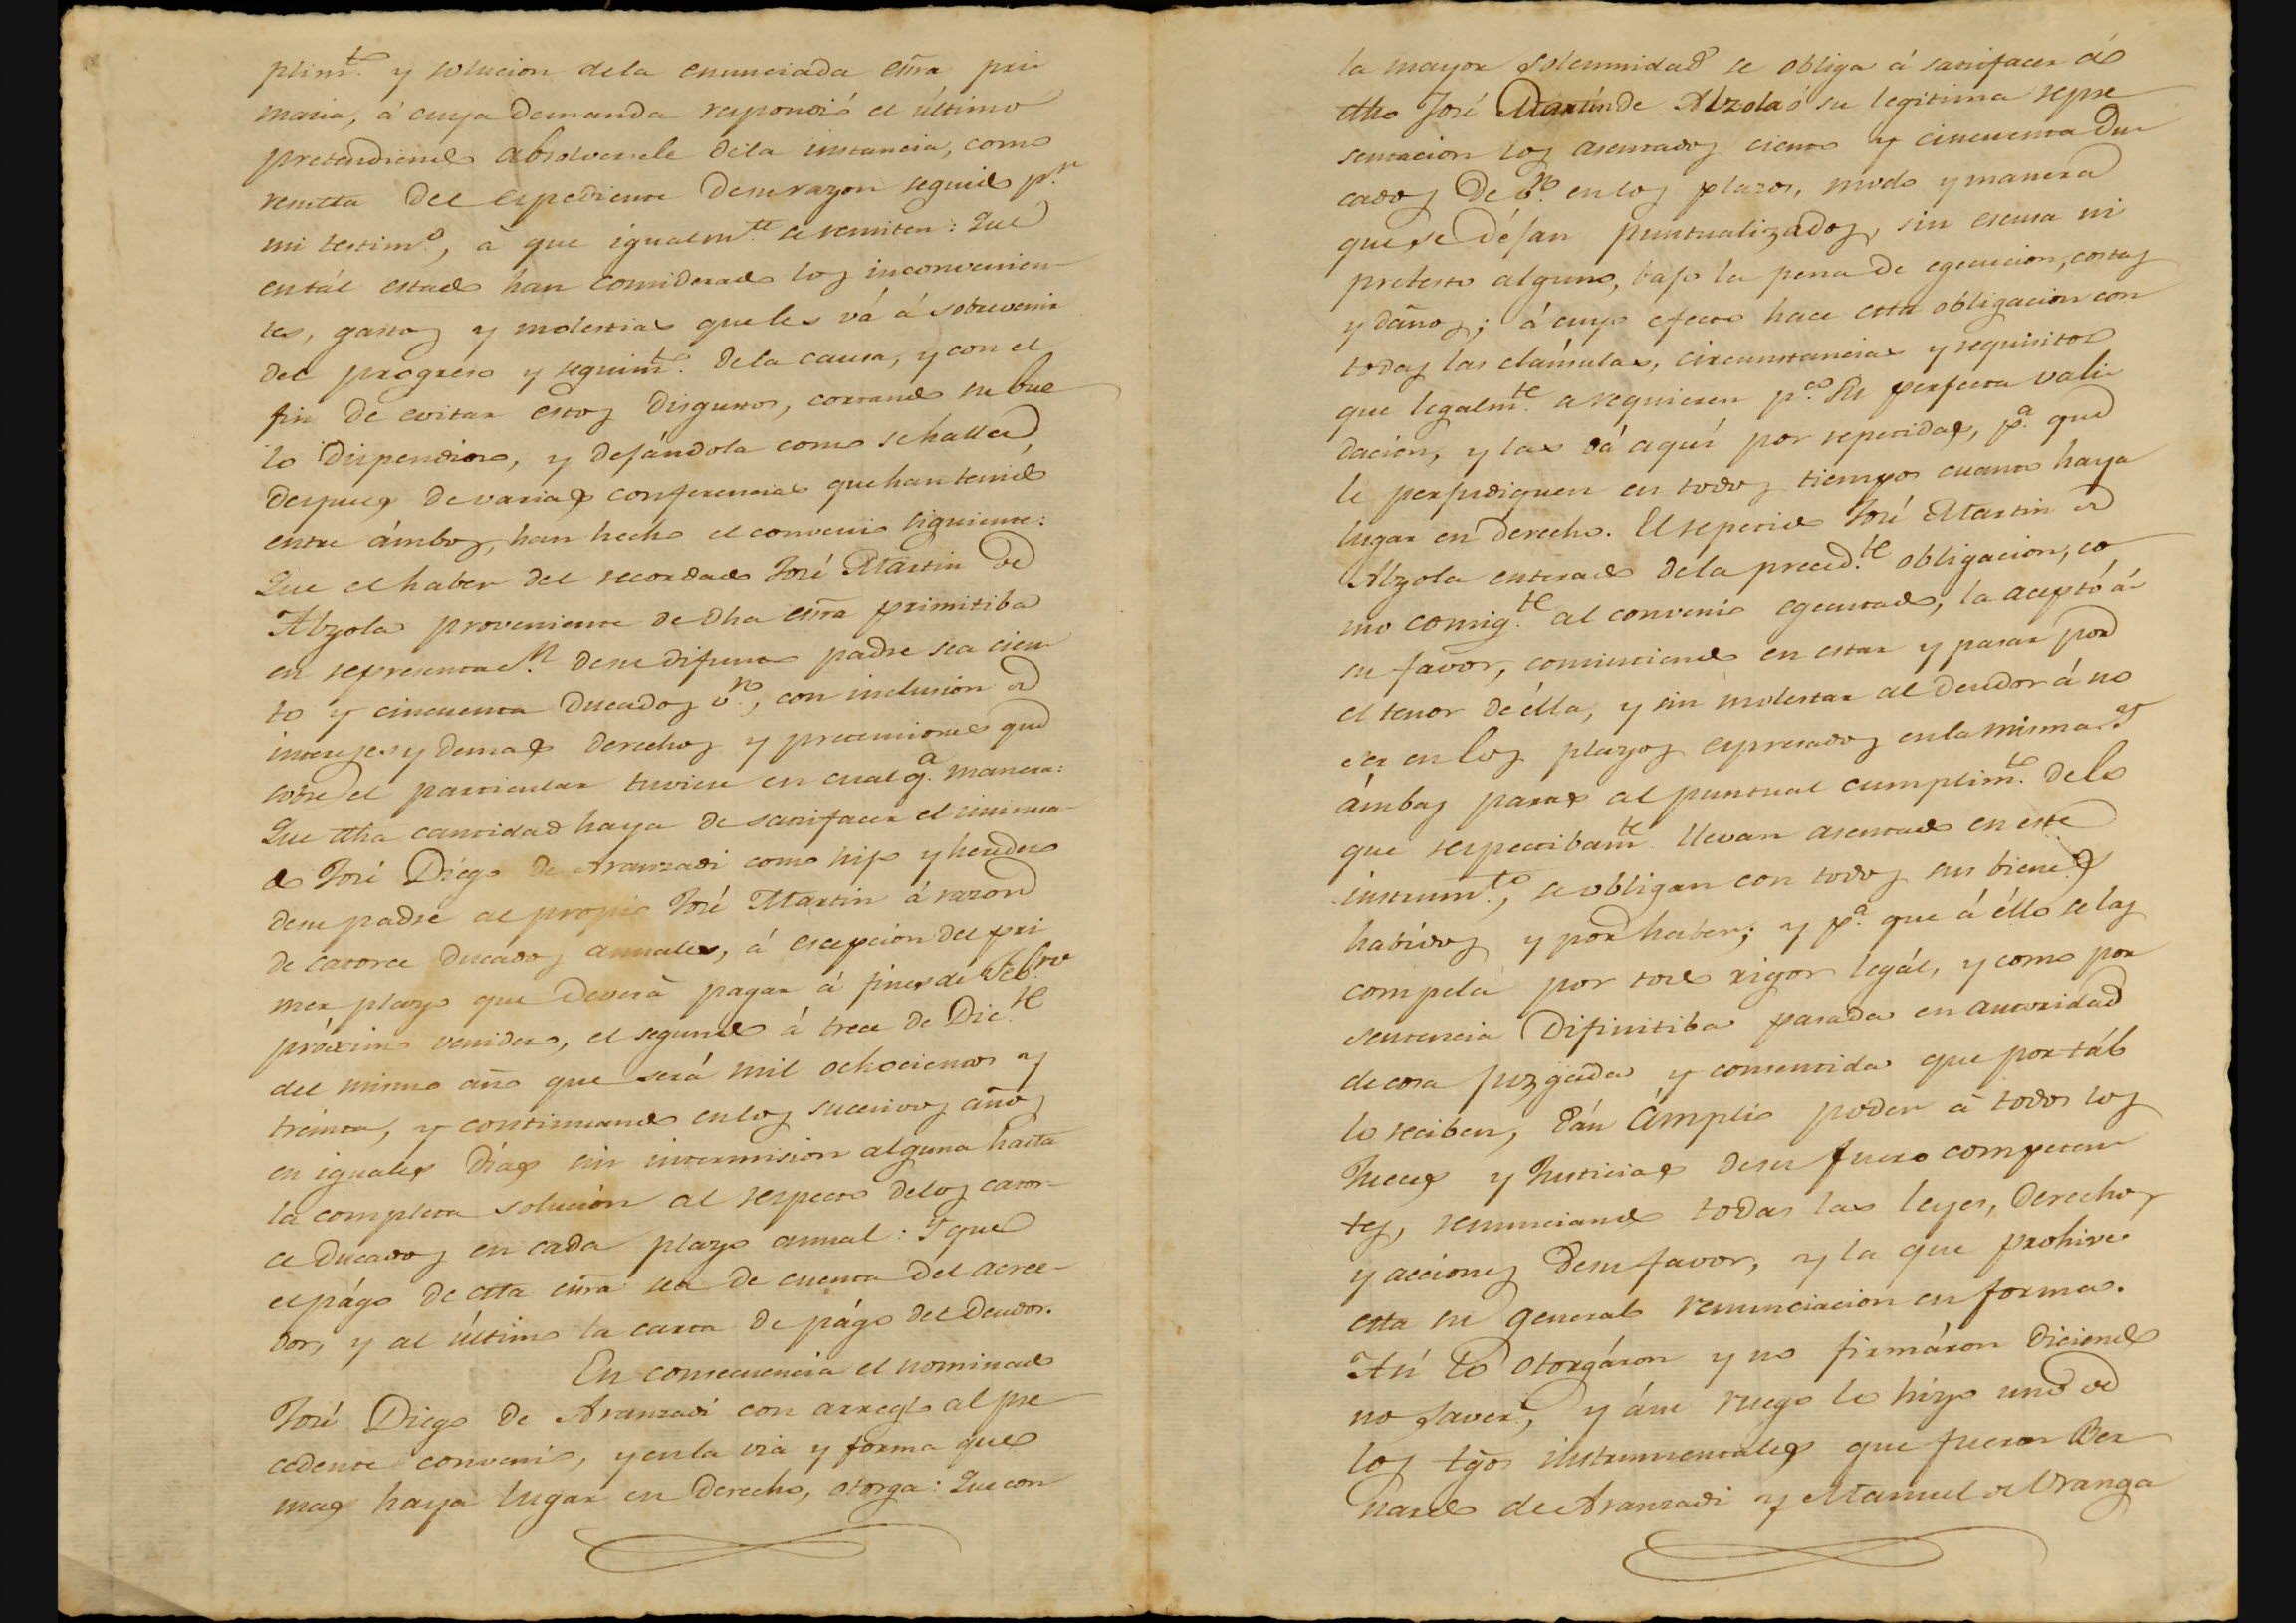 plimto. y solucion dela enunciada esra pri
maria, á cuya demanda respondió el último
pretendiendo absolversele dela instancia, como
resulta del expediente desu razon seguido pr.
mi testimo., á que igualmte. se remiten: Que
en tál estado han considerado los inconvenien-
tes, gastos y molestias que les vá á sobrevenir
del progreso y seguimto. dela causa, y con el
fin de evitar estos disgustos, cortando su bue
lo dispendioso, y dejándola como se halla,
despues de varias conferencias que han tenido
entre ámbos, han hecho el convenio siguiente:
Que el haber del recordado José Martin de
Alzola proveniente de dha esra primitiba
en representacn. desu difunto padre sea cien
to y cincuenta ducados vn., con inclusion de
intereses y demas derechos y pretensiones que
sobre el particular tuviese en cualqa. manera:
Que dha cantidad haya de satisfacer el insinua-
do José Diego de Aranzadi como hijo y heredero
desu padre al propio José Martin á razon
de catorce ducados annuales, á escepcion del pri
mer plazo que deverá pagar á fines de Febro.
próximo venidero, el segundo á trece de Dice.
del mismo año que será mil ochocientos y
treinta, y continuando en los sucesivos años
en iguales dias sin intermision alguna hasta
la completa solucion al respecto delos cator-
ce ducados en cada plazo annual: Y que
el págo de esta esra sea de cuenta del acree-
dor, y al último la carta de págo del deudor.
En consecuencia el nominado
José Diego de Aranzadi con arreglo al pre
cedente convenio, y en la via y forma que
mas haya lugar en derecho, otorga: Que con
la mayor solemnidad se obliga á satisfacer á
dho José Martin de Alzola ó su legitima repre
sentacion los asentados ciento y cincuenta du
cados de vn. en los plazos, modo y manera
que se déjan puntualizados, sin escusa ni
pretesto alguno, bajo la pena de egecucion, costas
y daños; á cuyo efecto hace esta obligacion con
todas las claúsulas, circunstancias y requisitos
que legalmte. se requieren pa. su perfecta vali
dacion, y las dá aquí por repetidas, pa. que
le perjudiquen en todos tiempos cuanto haya
lugar en derecho. El repetido José Martin de
Alzola enterado dela precedte. obligacion, co
mo consigte. al convenio egecutado, la aceptó á
su favor, consintiendo en estar y pasar por
el tenor de élla, y sin molestar al deudor á no
ser en los plazos expresados en la misma. Y
ámbas partes al puntual cumplimto. delo
que respectibamte. llevan asentado en este
instrumto., se obligan con todos sus bienes
habidos y por haber; y pa. que á éllo se las
compela por todo rigor legál, y como por
sentencia difinitiba pasada en autoridad
de cosa juzgada y consentida que por tál
lo reciben, dán ámplio poder á todos los
Jueces y Justicias desu fuero competen
tes, renunciando todas las leyes, derechos
y acciones desu favor, y la que prohive
esta su general renunciacion en forma.
Asi lo otorgáron y no firmáron diciendo
no saver, y ásu ruego lo hizo uno de
los tgos instrumentales que fueron Ber
nardo de Aranzadi y Manuel de Uranga